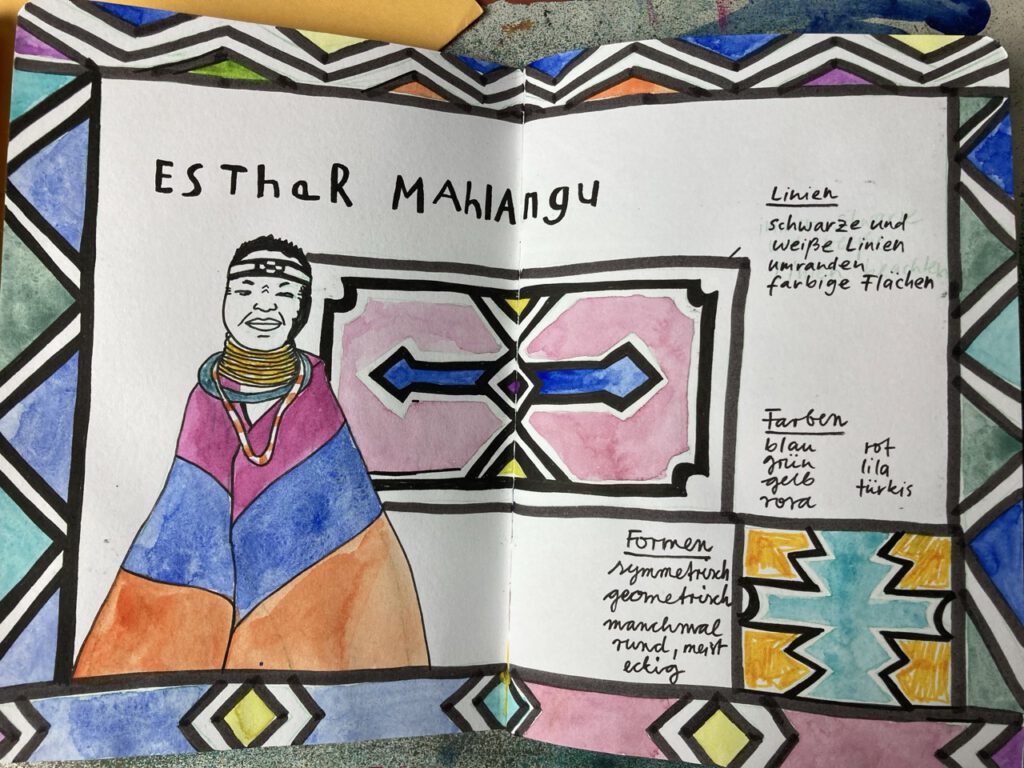 ESThaR MAhlAngu
Linien
schwarze und
weiße Linien
umranden
farbige Flächen
Farben
blau rot
grün lila
gelb türkis
rosa
Formen
symmetrisch
geometrisch
manchmal
rund, meist
eckig